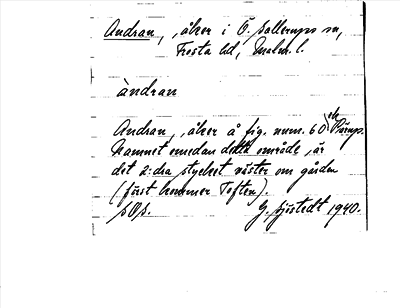 Andran, , åker i Ö. Sallerups sn,
Frosta hd, Malm. l.
àndran
Andran, , åker å fig. num. 60
Namnet emedan detta område , är
det 2:dra stycket väster om gården
(först kommer Toften).
G. Sjöstedt 1940.